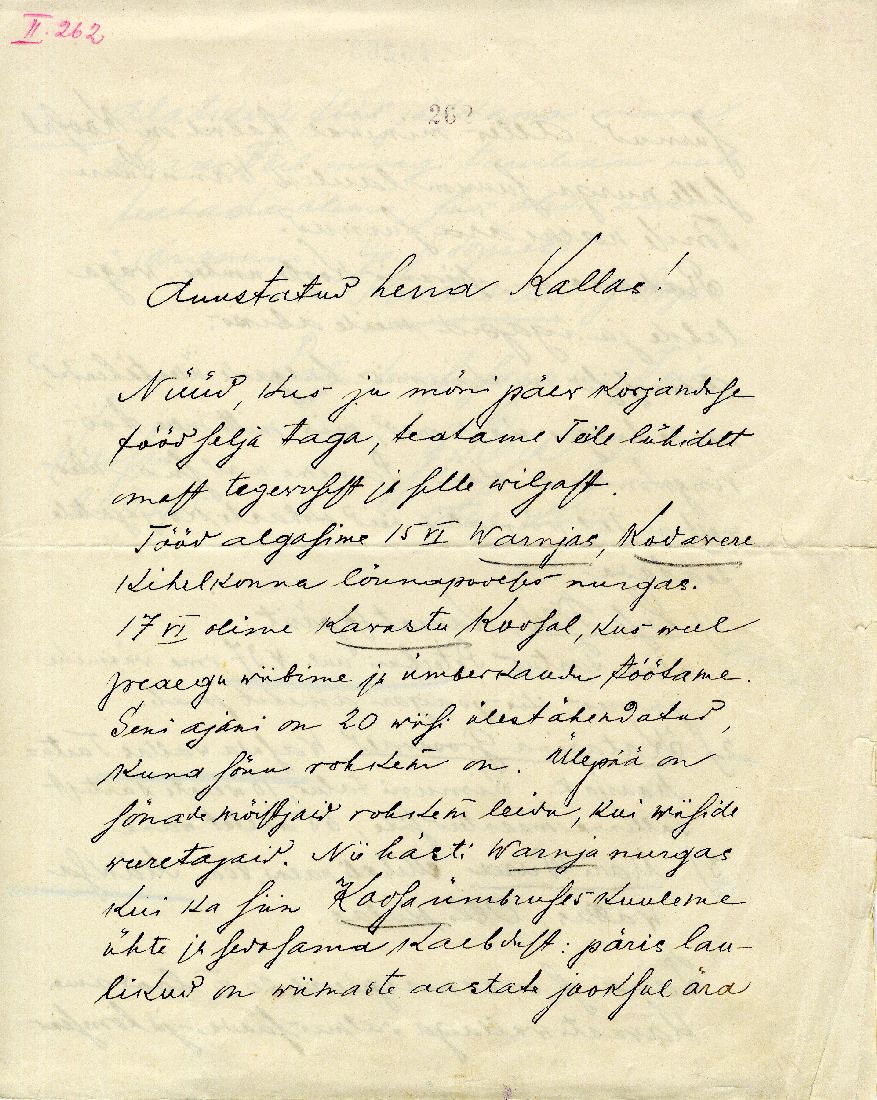 II. 262
262
Auustatud herra Kallas!
Nüüd, kus ju mõni päew korjanduse
tööd selja taga, teatame Teile lühidelt
omast tegewusest ja selle wiljast.
Tööd algasime 15 VI Warnjas, Kodawere
kihelkonna lõunapoolses nurgas.
17 VI olime Kawastu Koosal, kus weel
praegu wiibime ja ümberkaudu töötame.
Seni ajani on 20 wiisi ülestähendatud,
kuna sõnu rohkem on. Ülepää on
sõnade mõistjaid rohkem leida, kui wiiside
weeretajaid. Nii hästi Warnja nurgas
kui ka siin Koosa ümbruses kuuleme
ühte ja sedasama kaebdust: päris lau-
likud on wiimaste aastate jooksul ära